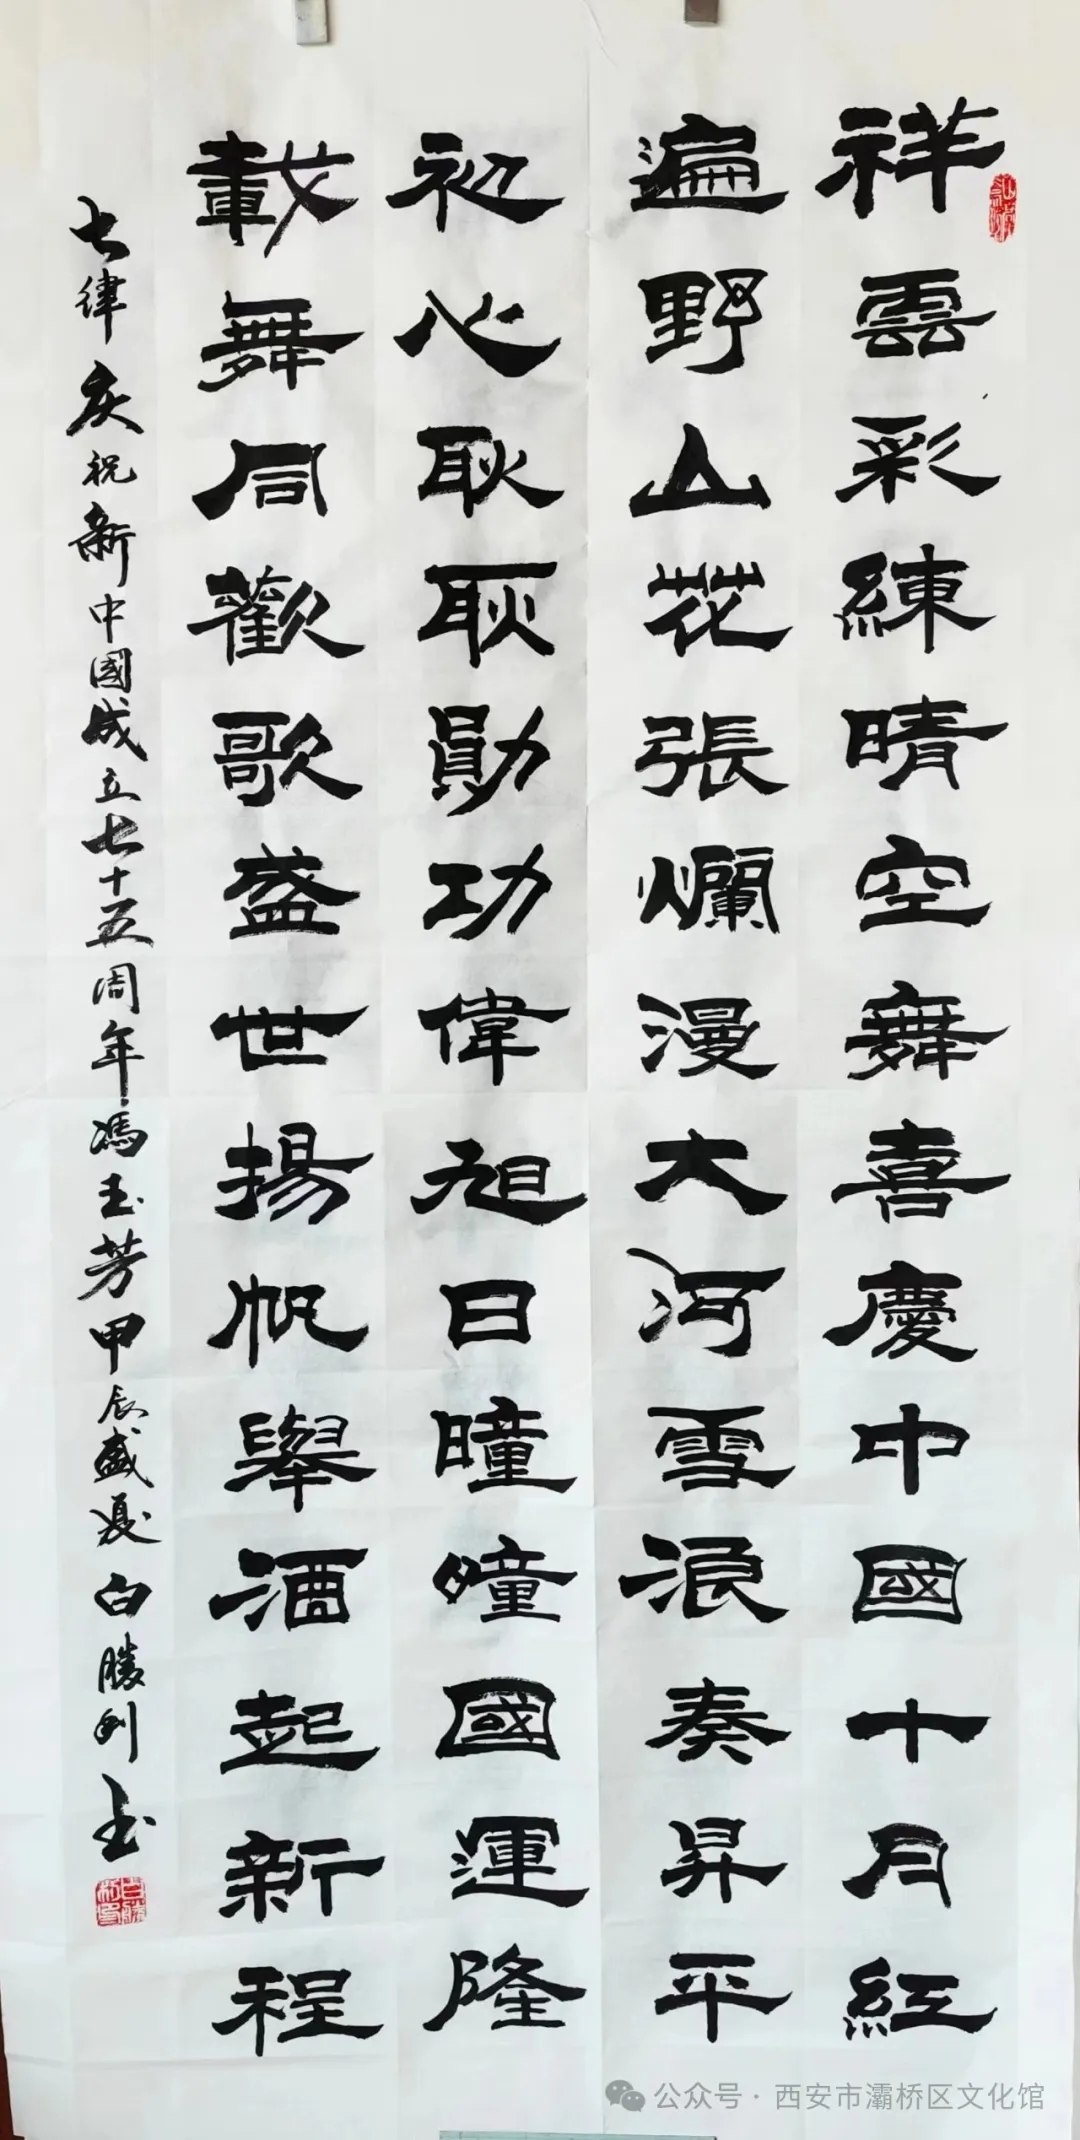 祥雲彩練晴空舞喜慶中國十月紅
遍野山花張爛漫大河雪浪奏昇平
初心耿耿勛功偉旭日曈曈國運隆
載舞同歡歌盛世揚帆舉酒起新程
七律庆祝新中國成立七十五周年馮玉芳甲辰盛夏白勝利書
公众号·西安市灞桥区文化馆